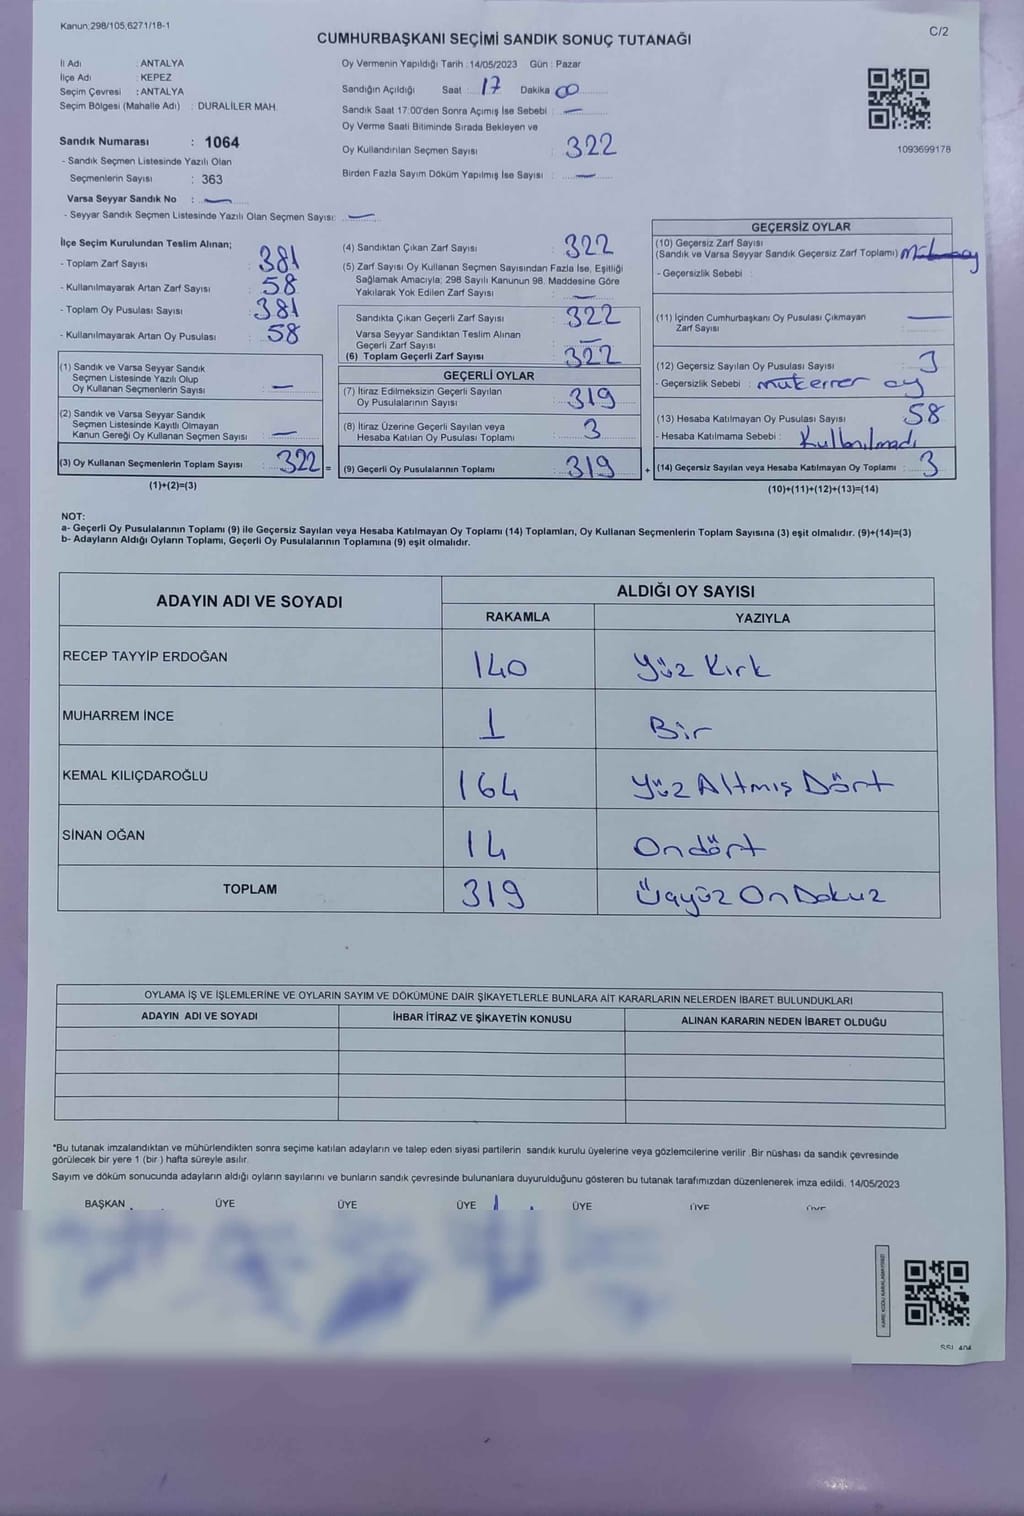 Kanun:298/105,6271/18-1
C/2
CUMHURBAŞKANI SEÇİMİ SANDIK SONUÇ TUTANAĞI
İl Adı : ANTALYA
İlçe Adı : KEPEZ
Seçim Çevresi : ANTALYA
Seçim Bölgesi (Mahalle Adı) : DURALİLER MAH.
Sandık Numarası : 1064
- Sandık Seçmen Listesinde Yazılı Olan
Seçmenlerin Sayısı : 363
Varsa Seyyar Sandık No : —
- Seyyar Sandık Seçmen Listesinde Yazılı Olan Seçmen Sayısı: —
Oy Vermenin Yapıldığı Tarih :14/05/2023 Gün : Pazar
Sandığın Açıldığı Saat : 17 Dakika 00
Sandık Saat 17:00'den Sonra Açımış İse Sebebi : —
Oy Verme Saati Bitiminde Sırada Bekleyen ve
Oy Kullandırılan Seçmen Sayısı : 322
Birden Fazla Sayım Döküm Yapılmış İse Sayısı : —
1093699178
İlçe Seçim Kurulundan Teslim Alınan;
- Toplam Zarf Sayısı : 381
- Kullanılmayarak Artan Zarf Sayısı : 58
- Toplam Oy Pusulası Sayısı : 381
- Kullanılmayarak Artan Oy Pusulası : 58
(1) Sandık ve Varsa Seyyar Sandık
Seçmen Listesinde Yazılı Olup
Oy Kullanan Seçmenlerin Sayısı : —
(2) Sandık ve Varsa Seyyar Sandık
Seçmen Listesinde Kayıtlı Olmayan
Kanun Gereği Oy Kullanan Seçmen Sayısı : —
(3) Oy Kullanan Seçmenlerin Toplam Sayısı : 322 =
(1)+(2)=(3)
(4) Sandıktan Çıkan Zarf Sayısı : 322
(5) Zarf Sayısı Oy Kullanan Seçmen Sayısından Fazla İse, Eşitliği
Sağlamak Amacıyla; 298 Sayılı Kanunun 98. Maddesine Göre
Yakılarak Yok Edilen Zarf Sayısı : —
Sandıkta Çıkan Geçerli Zarf Sayısı : 322
Varsa Seyyar Sandıktan Teslim Alınan
Geçerli Zarf Sayısı : —
(6) Toplam Geçerli Zarf Sayısı : 322
GEÇERLİ OYLAR
(7) İtiraz Edilmeksizin Geçerli Sayılan
Oy Pusulalarının Sayısı : 319
(8) İtiraz Üzerine Geçerli Sayılan veya
Hesaba Katılan Oy Pusulası Toplamı : 3
(9) Geçerli Oy Pusulalarının Toplamı : 319 +
GEÇERSİZ OYLAR
(10) Geçersiz Zarf Sayısı
(Sandık ve Varsa Seyyar Sandık Geçersiz Zarf Toplamı)
- Geçersizlik Sebebi :
(11) İçinden Cumhurbaşkanı Oy Pusulası Çıkmayan
Zarf Sayısı : —
(12) Geçersiz Sayılan Oy Pusulası Sayısı : 3
- Geçersizlik Sebebi : mükerrer oy
(13) Hesaba Katılmayan Oy Pusulası Sayısı : 58
- Hesaba Katılmama Sebebi : Kullanılmadı
(14) Geçersiz Sayılan veya Hesaba Katılmayan Oy Toplamı : 3
(10)+(11)+(12)+(13)=(14)
NOT:
a- Geçerli Oy Pusulalarının Toplamı (9) ile Geçersiz Sayılan veya Hesaba Katılmayan Oy Toplamı (14) Toplamları, Oy Kullanan Seçmenlerin Toplam Sayısına (3) eşit olmalıdır. (9)+(14)=(3)
b- Adayların Aldığı Oyların Toplamı, Geçerli Oy Pusulalarının Toplamına (9) eşit olmalıdır.
ADAYIN ADI VE SOYADI
ALDIĞI OY SAYISI
RAKAMLA YAZIYLA
RECEP TAYYİP ERDOĞAN 140 Yüz Kırk
MUHARREM İNCE 1 Bir
KEMAL KILIÇDAROĞLU 164 Yüz Altmış Dört
SİNAN OĞAN 14 Ondört
TOPLAM 319 Üçyüz On Dokuz
OYLAMA İŞ VE İŞLEMLERİNE VE OYLARIN SAYIM VE DÖKÜMÜNE DAİR ŞİKAYETLERLE BUNLARA AİT KARARLARIN NELERDEN İBARET BULUNDUKLARI
ADAYIN ADI VE SOYADI İHBAR İTİRAZ VE ŞİKAYETİN KONUSU ALINAN KARARIN NEDEN İBARET OLDUĞU
*Bu tutanak imzalandıktan ve mühürlendikten sonra seçime katılan adayların ve talep eden siyasi partilerin sandık kurulu üyelerine veya gözlemcilerine verilir. Bir nüshası da sandık çevresinde
görülecek bir yere 1 (bir ) hafta süreyle asılır.
Sayım ve döküm sonucunda adayların aldığı oyların sayılarını ve bunların sandık çevresinde bulunanlara duyurulduğunu gösteren bu tutanak tarafımızdan düzenlenerek imza edildi. 14/05/2023
BAŞKAN ÜYE ÜYE ÜYE ÜYE ÜYE ÜYE